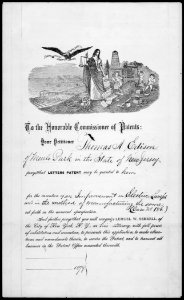 To the Honorable Commissioner of Patents:
Your Petitioner Thomas A. Edison
of Menlo Park in the State of New Jersey
prays that LETTERS PATENT may be granted to him
for the invention of an Improvement in Electric Lamps
and in the method of manufacturing the same
(Case No. 186)
set forth in the annexed specification.
And further prays that you will recognize LEMUEL W. SERRELL, of the
City of New York, N. Y., as his attorney, with full power
of substitution and revocation, to prosecute this application, to make
and amendments therein, to receive the Patent, and to transact all
business in the Patent Office connected therewith.